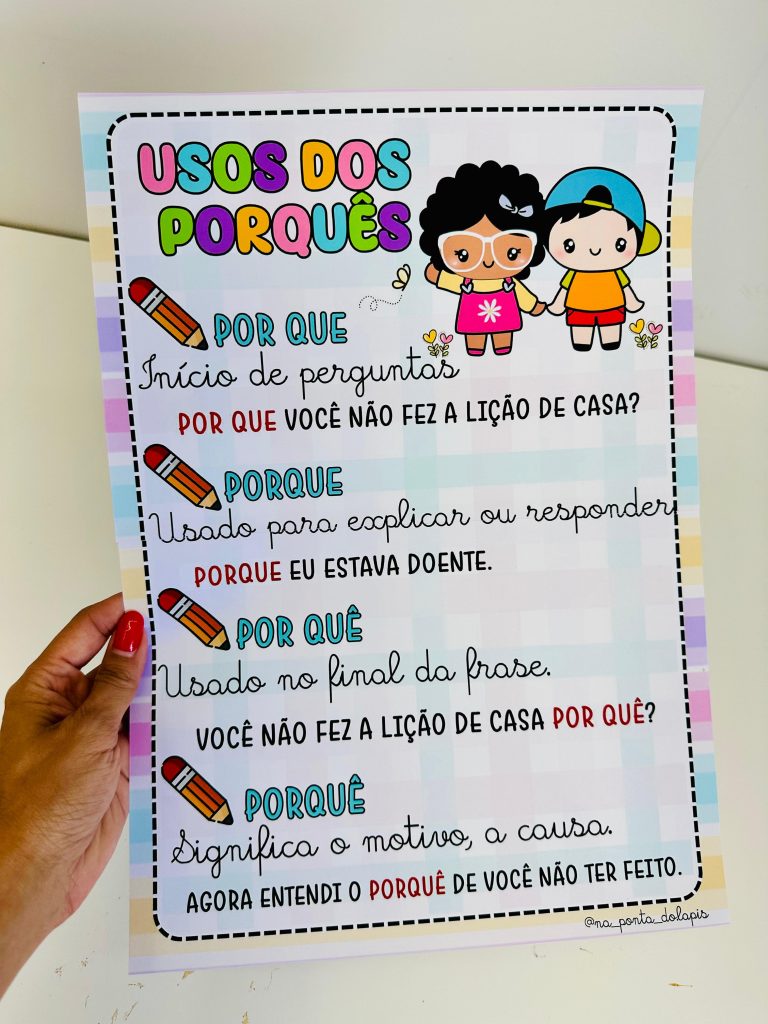 USOS DOS
PORQUÊS
POR QUE
Início de perguntas
POR QUE VOCÊ NÃO FEZ A LIÇÃO DE CASA?
PORQUE
Usado para explicar ou responder
PORQUE EU ESTAVA DOENTE.
POR QUÊ
Usado no final da frase.
VOCÊ NÃO FEZ A LIÇÃO DE CASA POR QUÊ?
PORQUÊ
Significa o motivo, a causa.
AGORA ENTENDI O PORQUÊ DE VOCÊ NÃO TER FEITO.
@na_ponta_dolapis